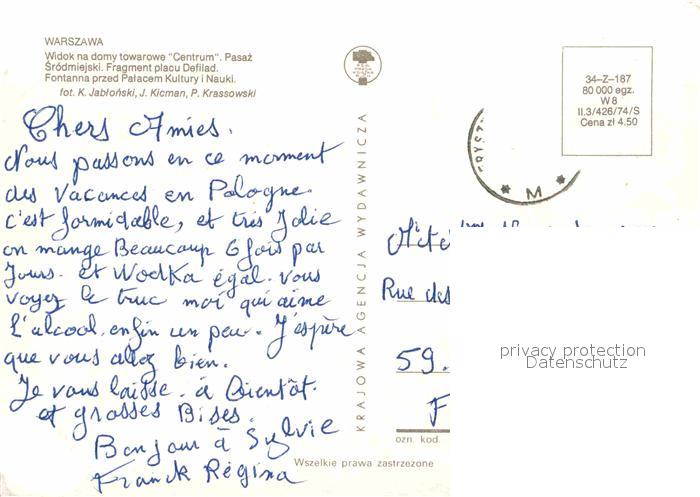 WARSZAWA
Widok na domy towarowe "Centrum". Pasaż
Śródmiejski. Fragment placu Defilad.
Fontanna przed Pałacem Kultury i Nauki.
fot. K. Jabłoński, J. Kicman, P. Krassowski
34-Z-187
80 000 egz.
W 8
II.3/426/74/S
Cena zł 4.50
M
Chers Amies.
Nous passons en ce moment
des Vacances en Pologne.
c'est formidable, et très Jolie
on mange Beaucoup 6 fois par
Jours. et Wodka égal. vous
voyez le truc moi qui aime
l'alcool. enfin un peu. J'espère
que vous allez bien.
Je vous laisse. à Bientôt.
et grosses Bises.
Bonjour à Sylvie
Franck Régina
KRAJOWA AGENCJA WYDAWNICZA
Rue des
59.
F
ozn. kod.
Wszelkie prawa zastrzeżone
privacy protection
Datenschutz